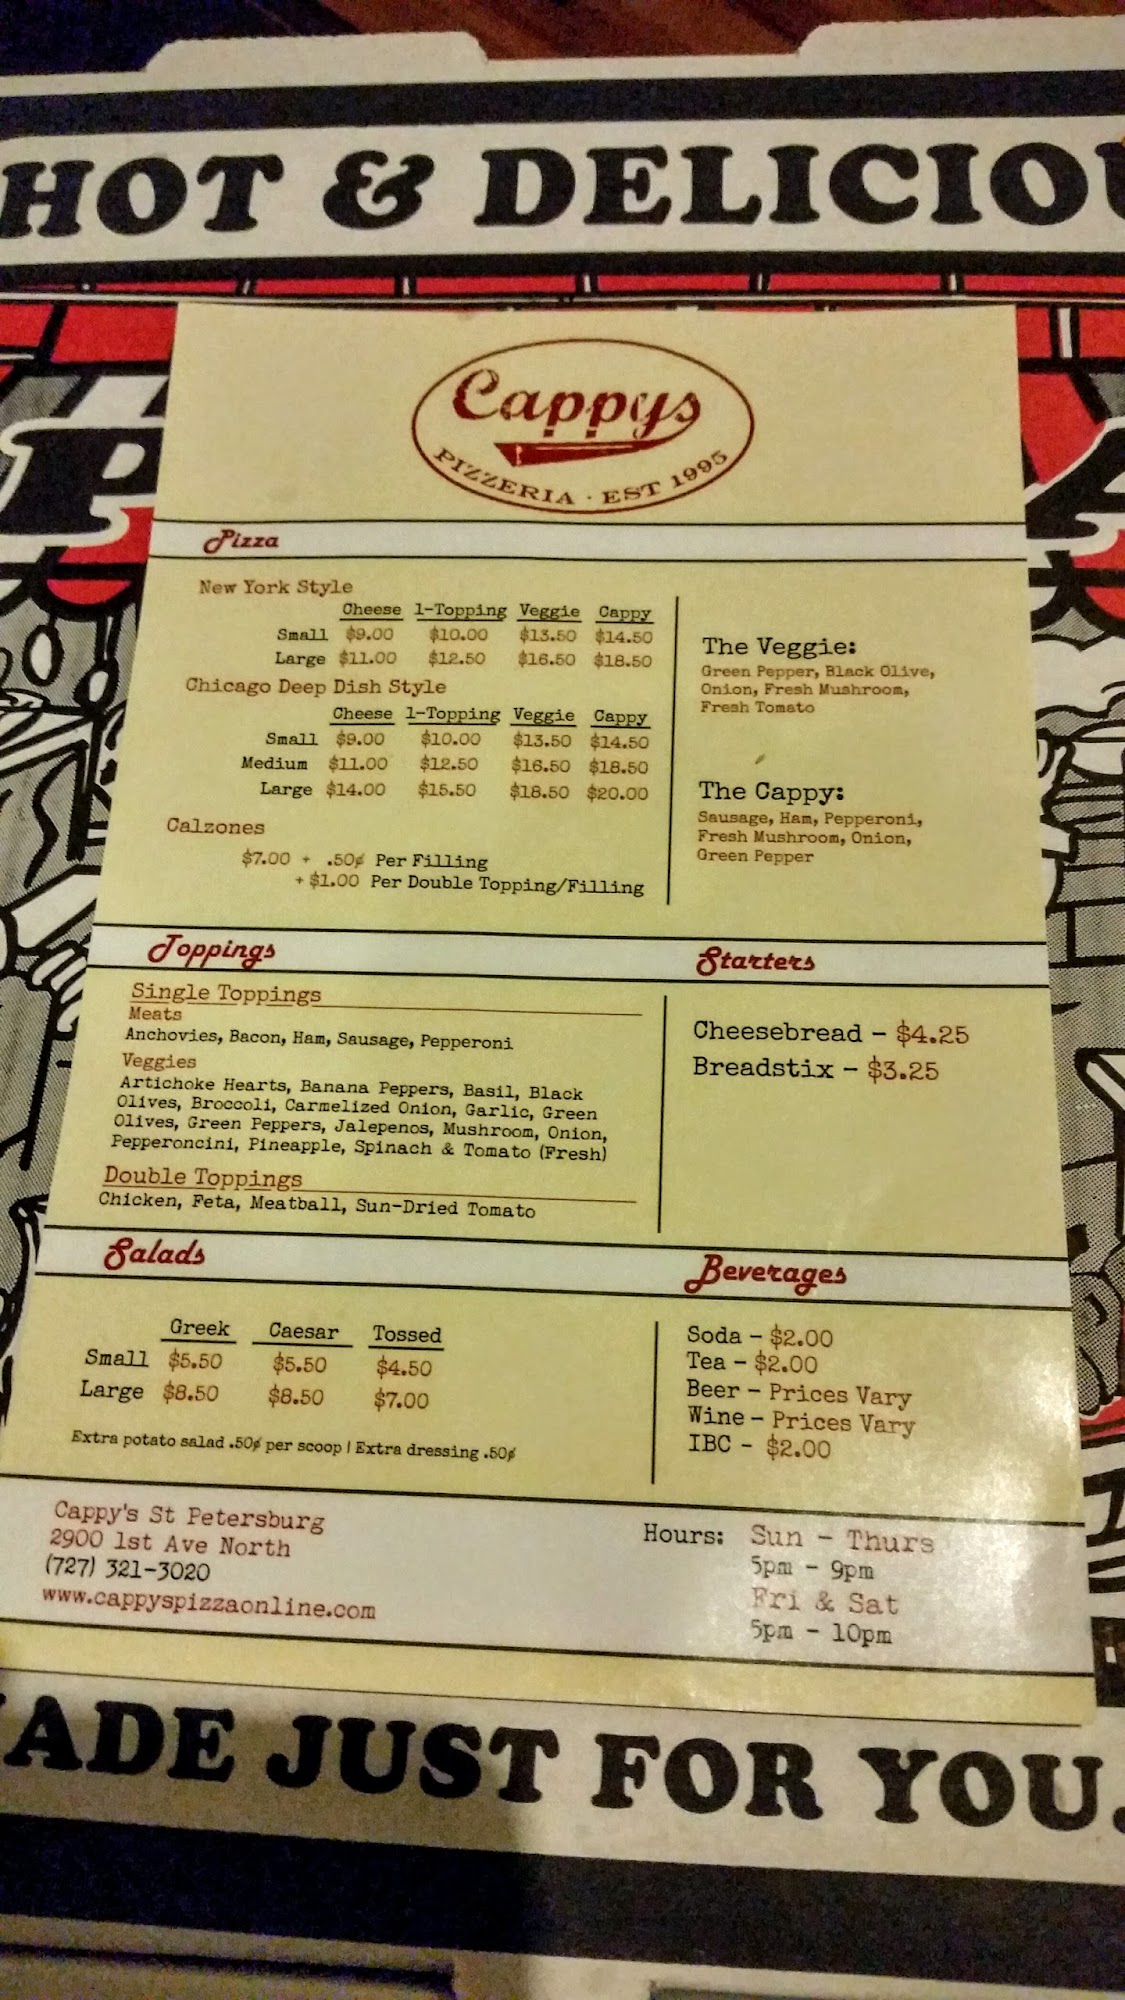 HOT & DELICIOU
Cappys
PIZZERIA · EST 1995
Pizza
New York Style
Cheese 1-Topping Veggie Cappy
Small $9.00 $10.00 $13.50 $14.50
Large $11.00 $12.50 $16.50 $18.50
Chicago Deep Dish Style
Cheese 1-Topping Veggie Cappy
Small $9.00 $10.00 $13.50 $14.50
Medium $11.00 $12.50 $16.50 $18.50
Large $14.00 $15.50 $18.50 $20.00
Calzones
$7.00 + .50¢ Per Filling
+ $1.00 Per Double Topping/Filling
The Veggie:
Green Pepper, Black Olive,
Onion, Fresh Mushroom,
Fresh Tomato
The Cappy:
Sausage, Ham, Pepperoni,
Fresh Mushroom, Onion,
Green Pepper
Toppings
Single Toppings
Meats
Anchovies, Bacon, Ham, Sausage, Pepperoni
Veggies
Artichoke Hearts, Banana Peppers, Basil, Black
Olives, Broccoli, Carmelized Onion, Garlic, Green
Olives, Green Peppers, Jalepenos, Mushroom, Onion,
Pepperoncini, Pineapple, Spinach & Tomato (Fresh)
Double Toppings
Chicken, Feta, Meatball, Sun-Dried Tomato
Starters
Cheesebread - $4.25
Breadstix - $3.25
Salads
Greek Caesar Tossed
Small $5.50 $5.50 $4.50
Large $8.50 $8.50 $7.00
Extra potato salad .50¢ per scoop | Extra dressing .50¢
Beverages
Soda - $2.00
Tea - $2.00
Beer - Prices Vary
Wine - Prices Vary
IBC - $2.00
Cappy's St Petersburg
2900 1st Ave North
(727) 321-3020
www.cappyspizzaonline.com
Hours: Sun - Thurs
5pm - 9pm
Fri & Sat
5pm - 10pm
ADE JUST FOR YOU.